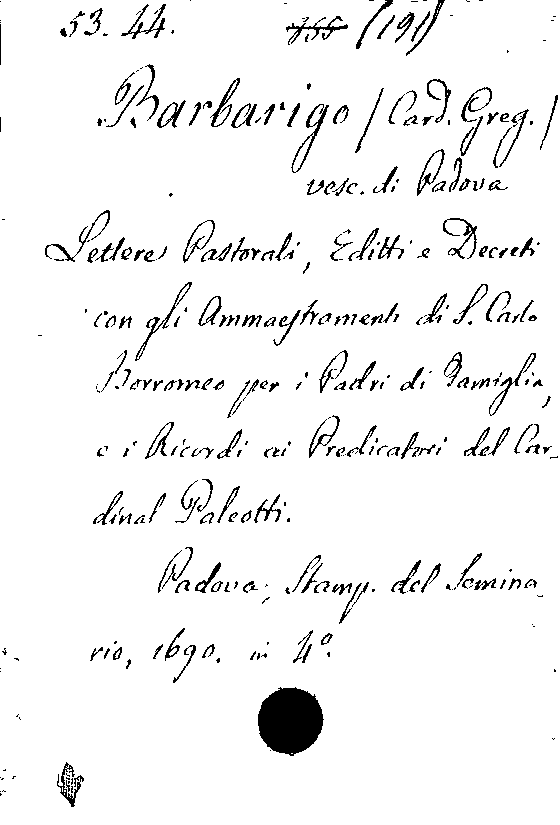 53. 44. 355 (191)
Barbarigo / Card. Greg. /
vesc. di Padova
Lettere Pastorali, Editti e Decreti
con gli Ammaestramenti di S. Carlo
Borromeo per i Padri di Famiglia,
e i Ricordi ai Predicatori del Car-
dinal Paleotti.
Padova, Stamp. del Semina-
rio, 1690. in 4º.